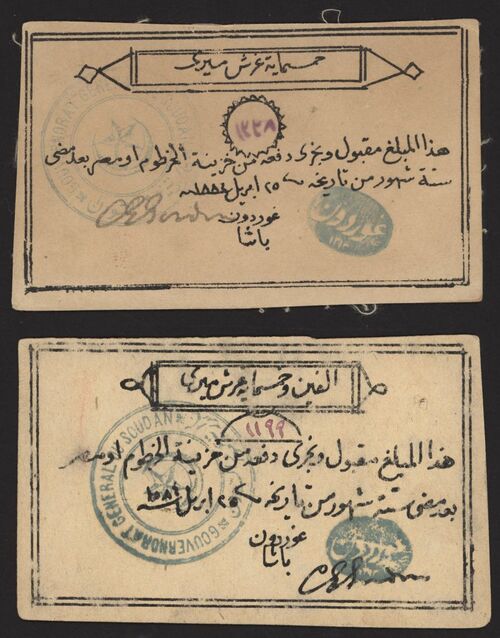 خمسماية غرش ميري
١٢٣٨
هذا المبلغ مقبول ويجري دفعه من خزينة الخرطوم او مصر بعد مضي
ستة شهور من تاريخه ٢٥ ابريل ١٨٨٤ سنه
غوردون
باشا
غوردون
الفين وخمسماية غرش ميري
١١٩٩
GOUVERNORAT GENERAL SOUDAN
هذا المبلغ مقبول ويجري دفعه من خزينة الخرطوم او مصر
بعد مضي ستة شهور من تاريخه ٢٥ ابريل ١٨٨٤ سنه
غوردون
باشا
غوردون